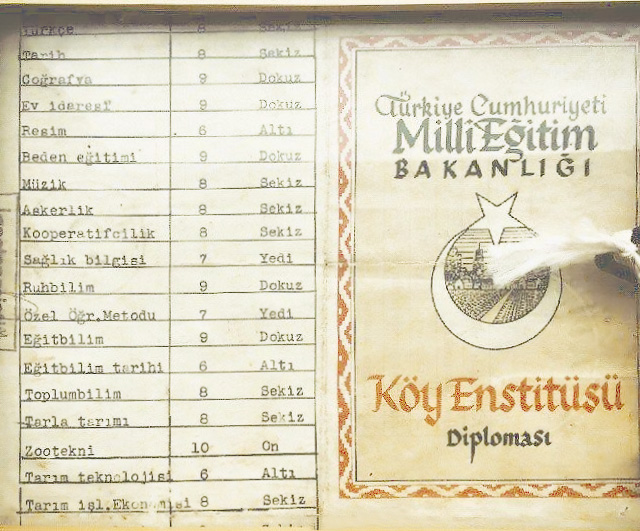 Türkçe 8 Sekiz
Tarih 8 Sekiz
Coğrafya 9 Dokuz
Ev idaresi 9 Dokuz
Resim 6 Altı
Beden eğitimi 9 Dokuz
Müzik 8 Sekiz
Askerlik 8 Sekiz
Kooperatifcilik 8 Sekiz
Sağlık bilgisi 7 Yedi
Ruhbilim 9 Dokuz
Özel Öğr.Metodu 7 Yedi
Eğitbilim 9 Dokuz
Eğitbilim tarihi 6 Altı
Toplumbilim 8 Sekiz
Tarla tarımı 8 Sekiz
Zootekni 10 On
Tarım teknolojisi 6 Altı
Tarım işl.Ekonomisi 8 Sekiz
Türkiye Cumhuriyeti
Milli Eğitim
BAKANLIĞI
Köy Enstitüsü
Diploması